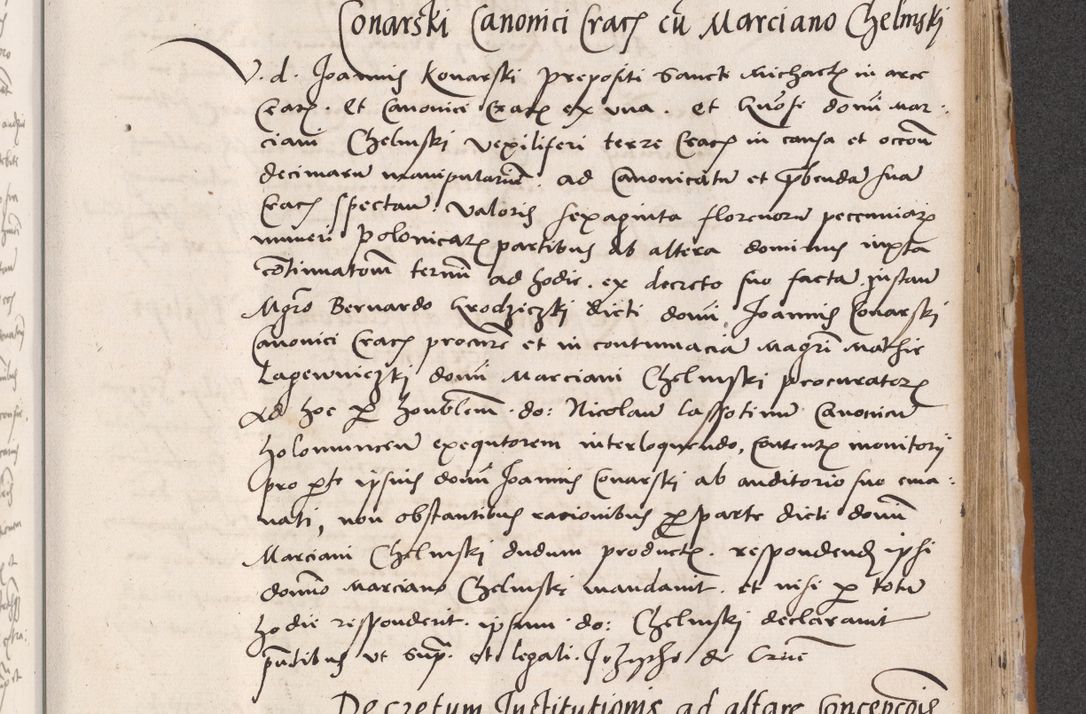 Conarski Canonici Crac̄ cū Marciano Chelmski
V. d. Joannis Konarski prepositi Sancti Michaelis in arce
Crac̄. Et Canonici Crac̄ ex una. Et Gn̄osi domī Mar-
ciani Chelmski vexiliferi terre Crac̄ in causa et occōn
decimarū manipulariū. ad Canonicatū et p̄benda sua
Crac̄ spectan̄. valoris sexaginta florenorū pecuniar̄
numeri polonicar̄ partibus ab altera dominus iuxta
cōtinuatom̄ termī ad hodie. ex decreto suo factā instan̄
Mgr̄o Bernardo Grodziczki dicti domī Joannis Conarski
Canonici Crac̄ procur̄e et in contumaciā Magrī Mathie
Lagewniczki domī Marciani Chelmski procurator̄
Ad hoc p̄ honblem̄. do: Nicolaū Lassotinū Canonicū
holomuncen̄ exequtorem interloquendo, contentȝ monitorij
pro p̄te ipsius domī Joannis Conarski ab auditorio suo ema-
nati, non obstantibus racionibus p̄ parte dicti domī
Marciani Chelmski dudum productȝ. respondend̄ ipsi
dominō Marciano Chelmski mandavit. et nisi p̄ totū
hodie responderit. ipsum do: Chelmski declaravit
p̄ntibus ut sup̄. et legali. Jozypho de
Decretum Institutionis ad altare Concepcōis